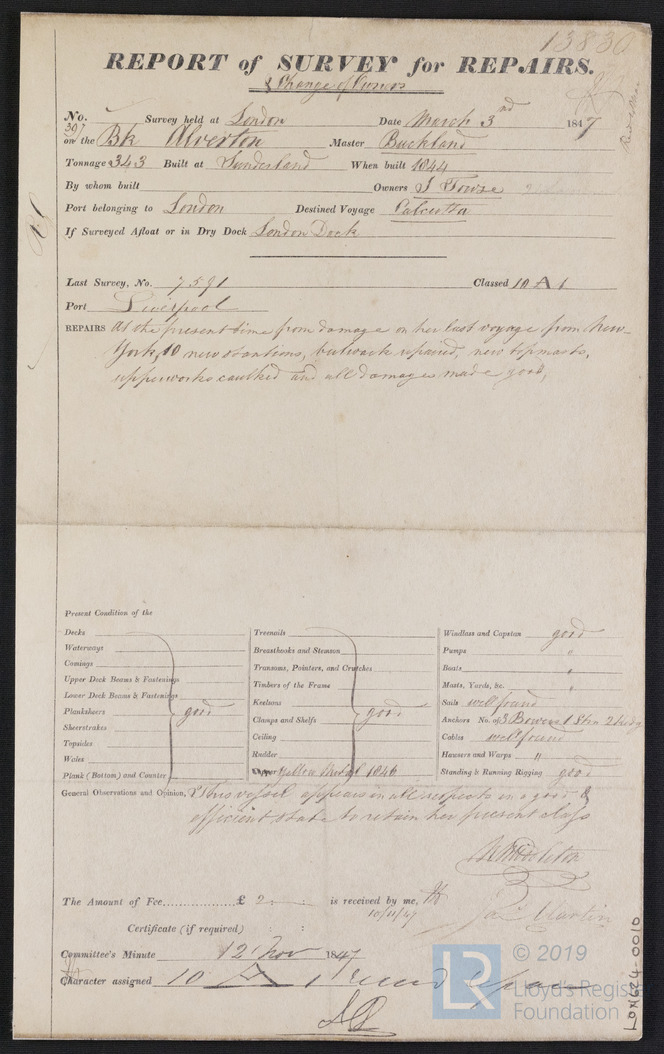 13830
REPORT of SURVEY for REPAIRS.
& Change of Owners
No. Survey held at London Date March 3rd 1847
on the Bk Alverton Master Buckland
Tonnage 343 Built at Sunderland When built 1844
By whom built Owners J Towse
Port belonging to London Destined Voyage Calcutta
If Surveyed Afloat or in Dry Dock London Dock
Last Survey, No. 7591 Classed 10 A 1
Port Liverpool
REPAIRS At the present time from damage on her last voyage from New-
York, 10 new stantions, bulwark repaired, new topmasts,
upperworks caulked and all damages made good,
Present Condition of the
Decks
Waterways
Comings
Upper Deck Beams & Fastenings
Lower Deck Beams & Fastenings
Planksheers good
Sheerstrakes
Topsides
Wales
Plank (Bottom) and Counter
Treenails
Breasthooks and Stemson
Transoms, Pointers, and Crutches
Timbers of the Frame
Keelsons
Clamps and Shelfs good
Ceiling
Rudder
Copper Yellow Metal 1846
Windlass and Capstan good
Pumps "
Boats "
Masts, Yards, &c. "
Sails well found
Anchors No. of 3 Bowers 1 Stm 2 kedg
Cables well found
Hawsers and Warps "
Standing & Running Rigging good
General Observations and Opinion, This vessel appears in all respects in a good &
efficient state to retain her present class
Middleton
The Amount of Fee £ 2 is received by me,
10/11/47 Jas Martin
Certificate (if required)
Committee's Minute 12 Nov 1847
Character assigned 10 A 1
LR © 2019
Lloyd's Register
Foundation
LON624-0010